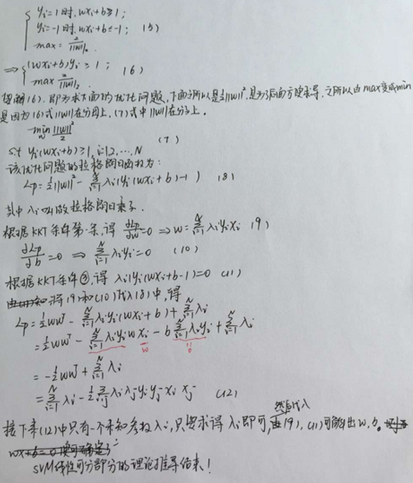 { yi=1时, wxi+b≥1;
yi=-1时, wxi+b≤-1; (5)
max = 2/||w||。
⇒ { (wxi+b)yi ≥ 1; (6)
max 2/||w||。
(6), 即求下面的优化问题, 下面之所以是½||w||², 是为后面方便求导, 之所以由max变成min
是因为(6)式||w||在分母上, (7)式中||w||在分子上。
min ||w||²/2
st yi(wxi+b)≥1, i=1,2,…N (7)
该优化问题的拉格朗日函数为:
Lp = ½||w||² - Σ(i=1..N) λi(yi(wxi+b)-1) (8)
其中λi叫做拉格朗日乘子.
根据KKT条件第一条, 得 dLp/dw=0 ⇒ w=Σ(i=1..N) λiyixi (9)
dLp/db = 0 ⇒ Σ(i=1..N) λiyi=0 (10)
根据KKT条件③, 得 λi(yi(wxi+b)-1)=0 (11)
将(9)和(10)代入(8)中, 得
Lp = ½wwᵀ - Σ(i=1..N) λiyi(wxi+b) + Σ(i=1..N) λi
= ½wwᵀ - Σ(i=1..N) λiyiwxi - bΣ(i=1..N) λiyi + Σ(i=1..N) λi
w 0
= -½wwᵀ + Σ(i=1..N) λi
= Σ(i=1..N) λi - ½Σ λiλjyiyj xi xj (12)
然后代入
接下来(12)中只有一个未知参数λi, 只要求得λi即可, (9), (11)可解出w, b。
SVM线性可分部分的理论推导结束!